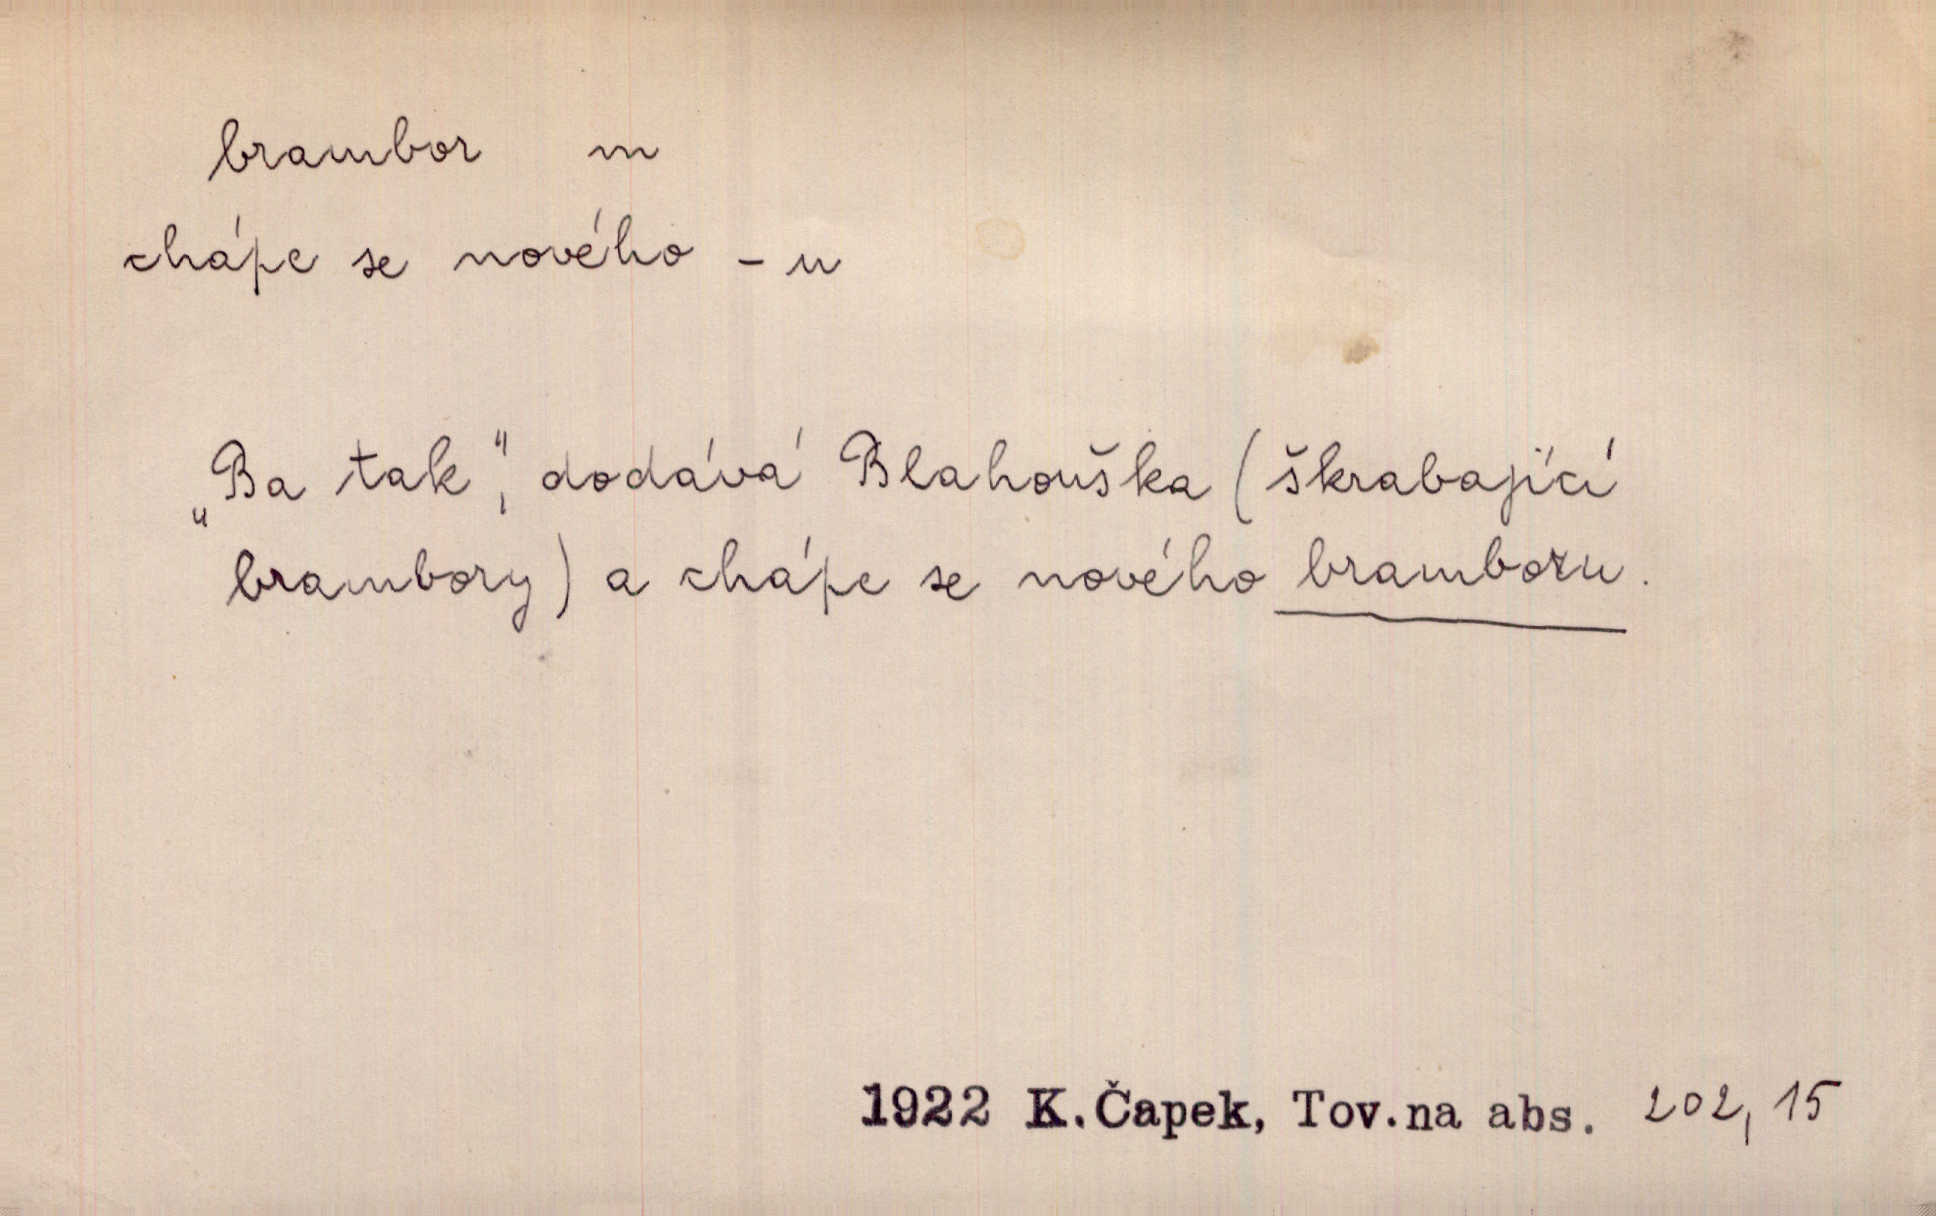 brambor m
chápe se nového - u
„Ba tak“, dodává Blahouška (škrabající
brambory) a chápe se nového bramboru.
1922 K. Čapek, Tov. na abs. 202, 15